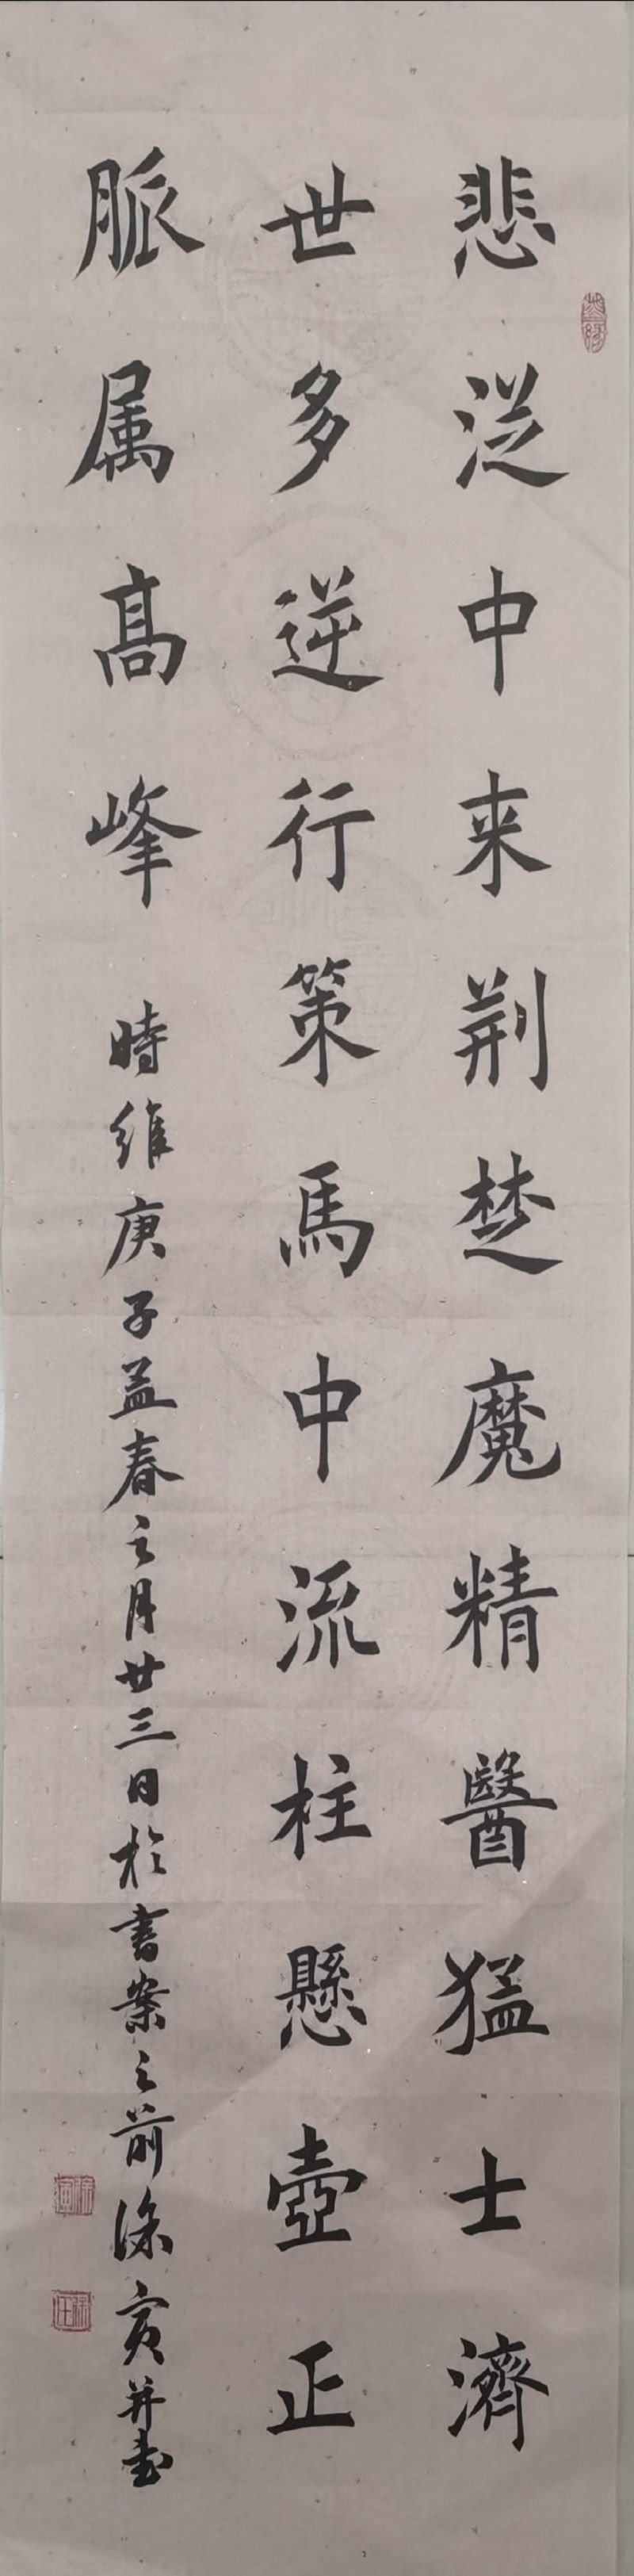 悲從中来荆楚魔精醫猛士濟
世多逆行策馬中流柱懸壺正
脈属高峰 時維庚子益春之月廿三日於書案之前徐寅并書